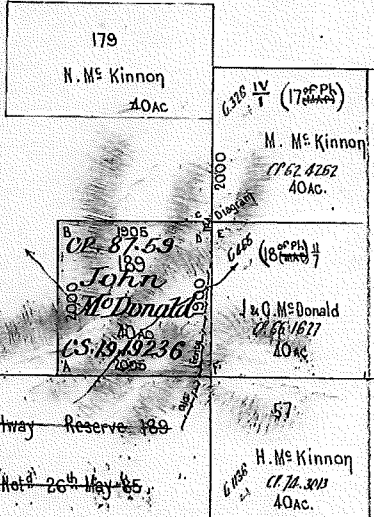 179
N. Mc Kinnon
40AC
G.326 IV/1 (17 of Ph)
M. McKinnon
CP.62.4262
40AC.
2000
Diagram
C
B 1905 D E
CP. 87.59
189
John
McDonald
2000
1900
40AC
CS.19.19236
A 2005 F
(18 of Ph) 11/7
J & Q. McDonald
CP.66.1627
40AC
Reserve 189
Notd 26th May 85.
57
H. McKinnon
G.1136
CP.74.3013
40AC.